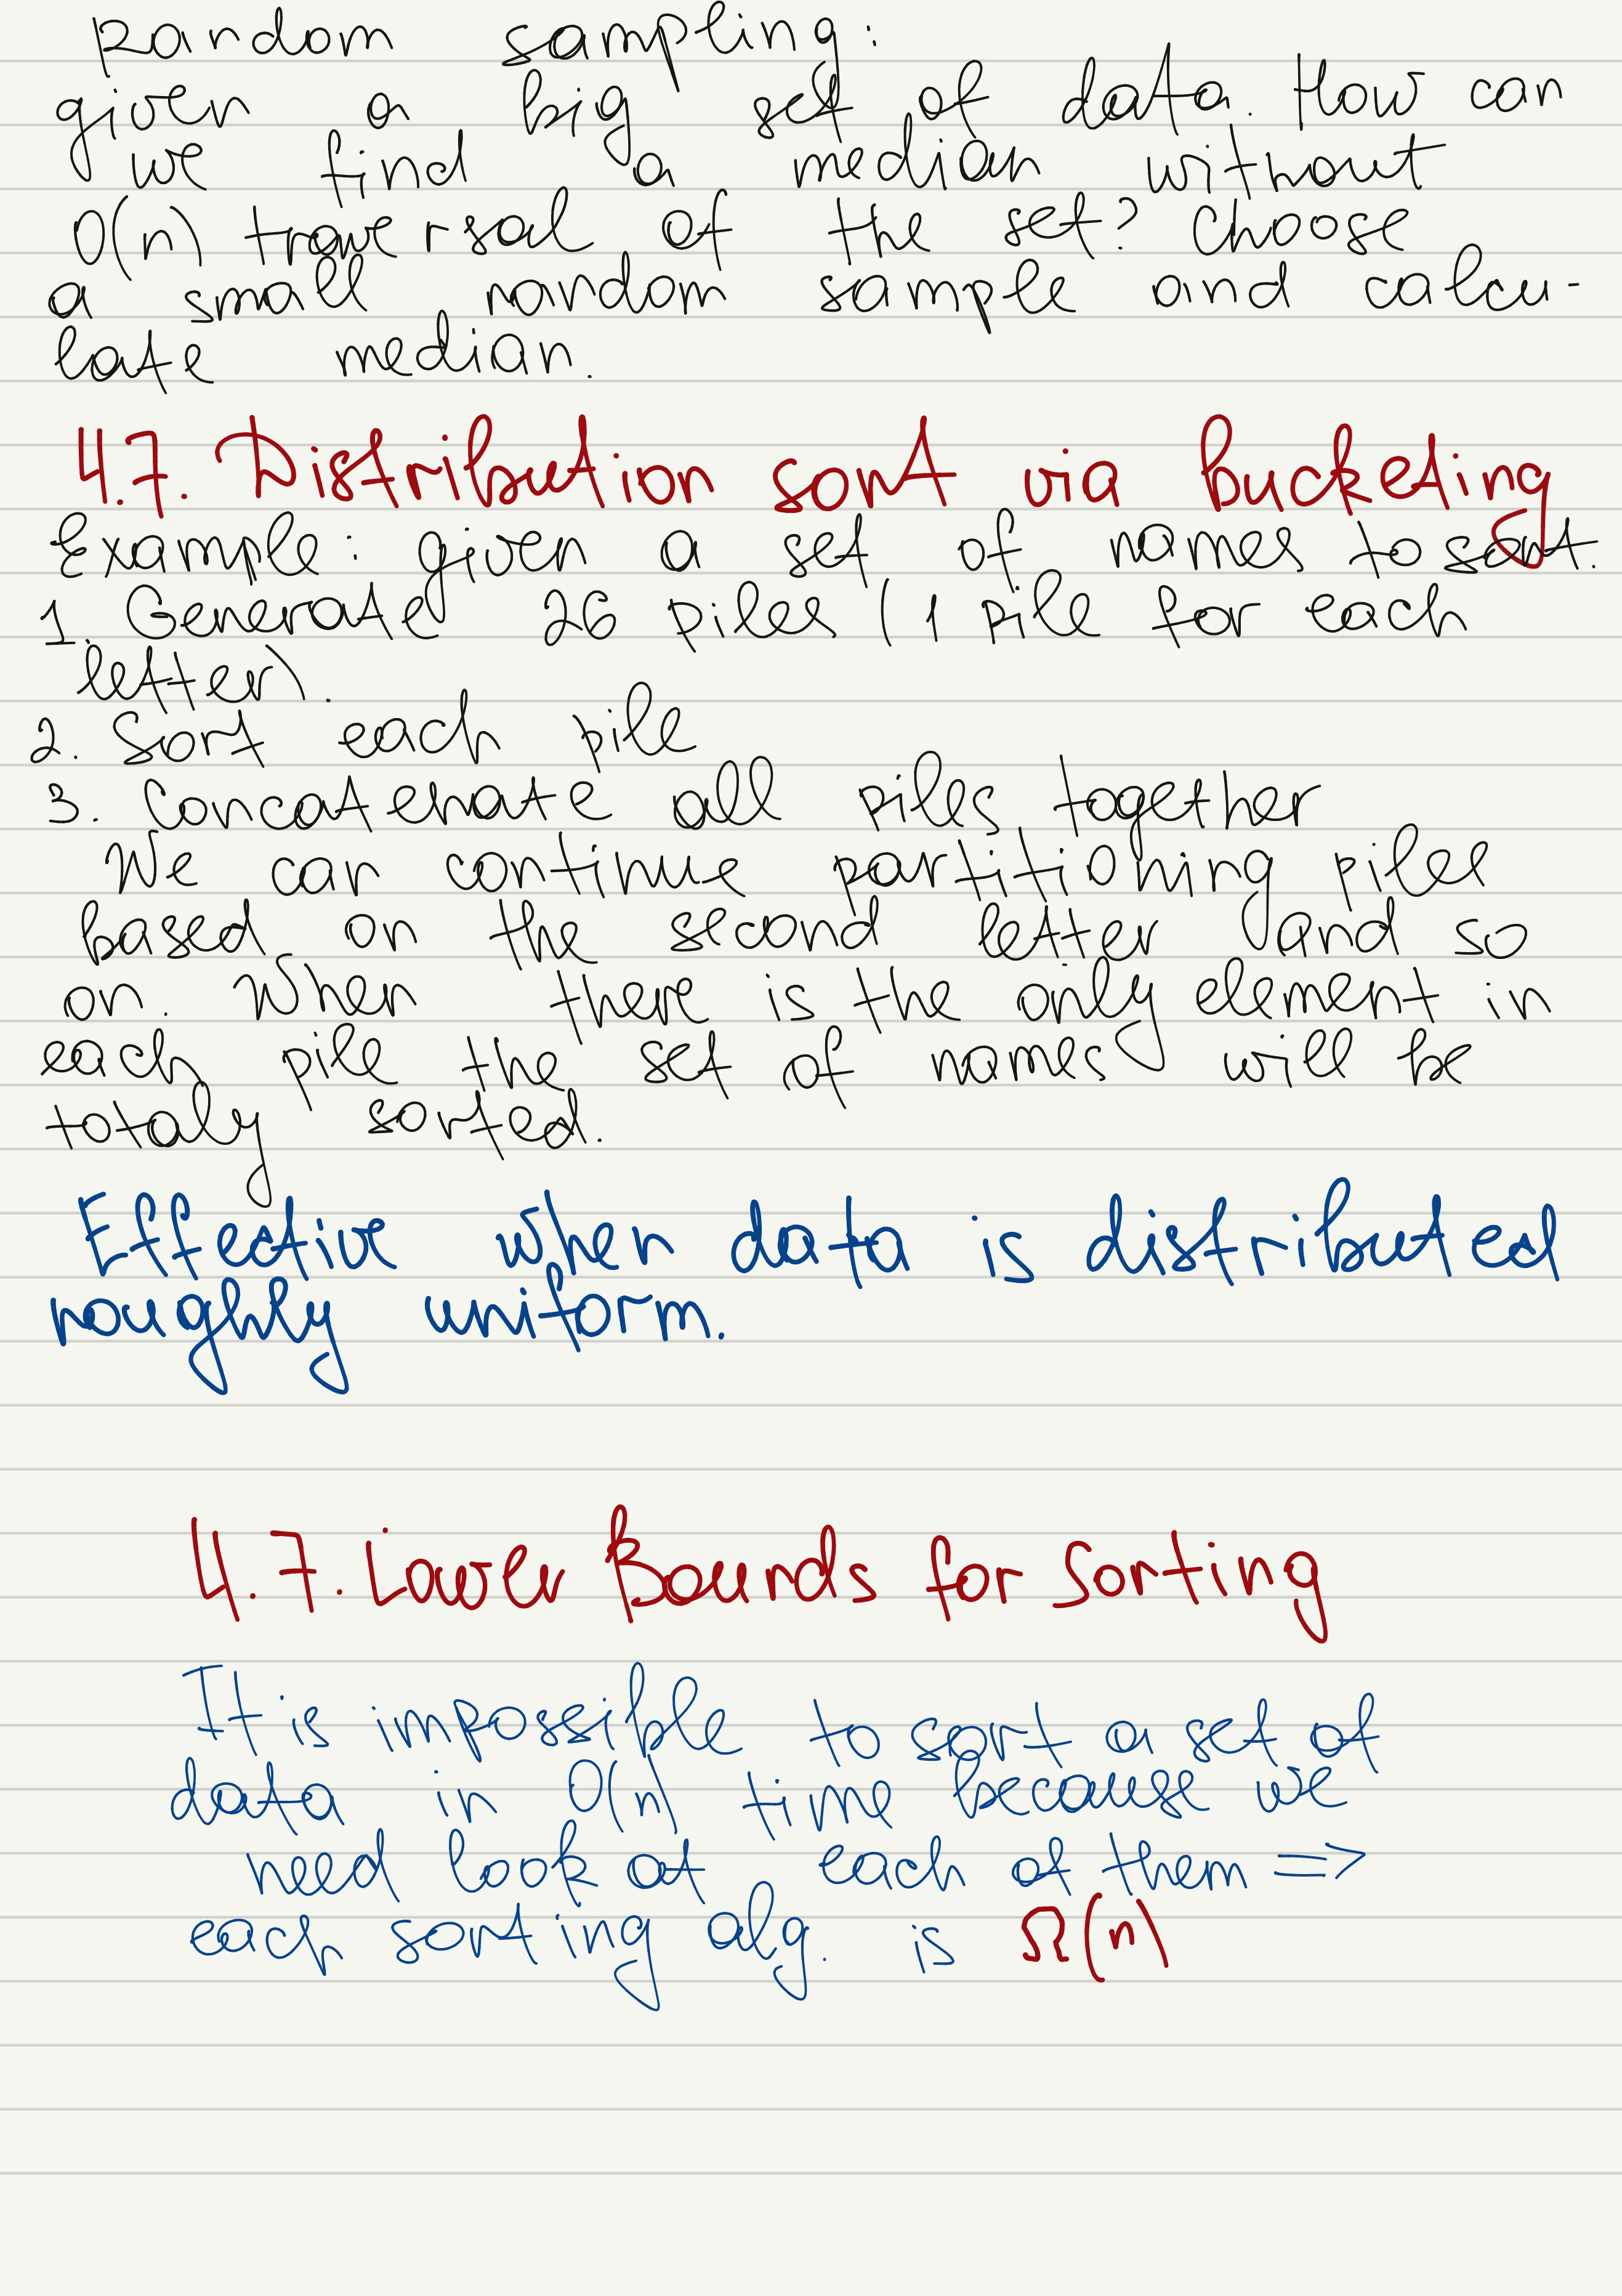 Random sampling:
given a big set of data. How can
we find a median without
O(n) traversal of the set? Choose
a small random sample and calcu-
late median.
4.7. Distribution sort via bucketing
Example: given a set of names to sort.
1. Generate 26 piles (1 pile for each
letter).
2. Sort each pile
3. Concatenate all piles together
We can continue partitioning piles
based on the second letter and so
on. When there is the only element in
each pile the set of names will be
totaly sorted.
Effective when data is distributed
roughly uniform.
4.7. Lower Bounds for Sorting
It is impossible to sort a set of
data in O(n) time because we
need look at each of them ⇒
each sorting alg. is Ω(n)